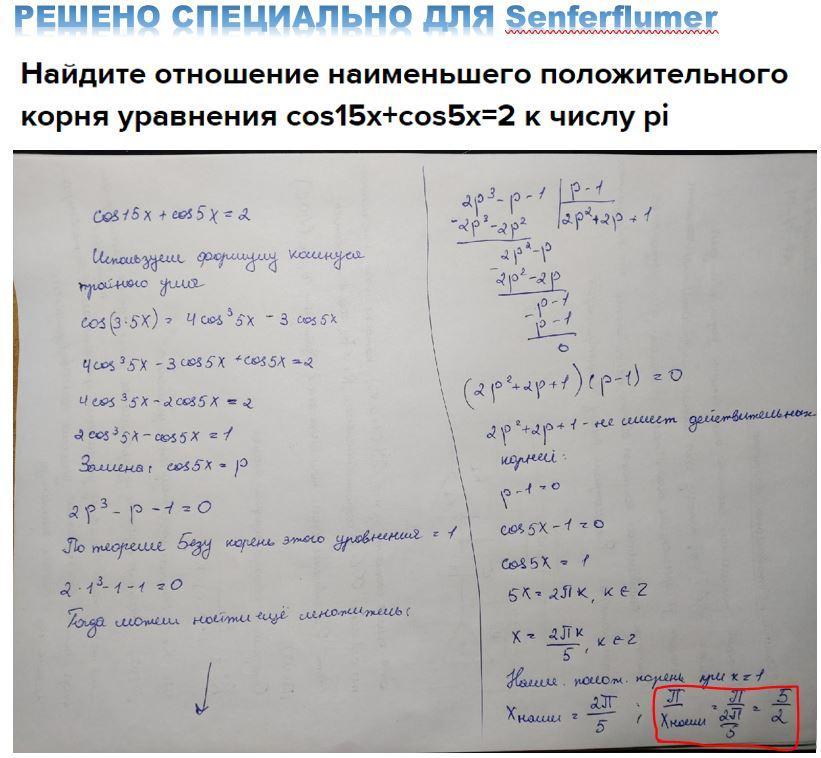 РЕШЕНО СПЕЦИАЛЬНО ДЛЯ Senferflumer
Найдите отношение наименьшего положительного
корня уравнения cos15x+cos5x=2 к числу pi
cos15x + cos5x = 2
Используем формулу косинуса
тройного угла
cos(3·5x) = 4cos³5x - 3cos5x
4cos³5x - 3cos5x + cos5x = 2
4cos³5x - 2cos5x = 2
2cos³5x - cos5x = 1
Замена: cos5x = p
2p³ - p - 1 = 0
По теореме Безу корень этого уровнения = 1
2·1³ - 1 - 1 = 0
Тогда можем найти ещё множитель:
2p³ - p - 1 | p - 1
-2p³ - 2p² | 2p² + 2p + 1
2p² - p
-2p² - 2p
-p - 1
p - 1
0
(2p² + 2p + 1)(p - 1) = 0
2p² + 2p + 1 - не имеет действительных
корней:
p - 1 = 0
cos5x - 1 = 0
cos5x = 1
5x = 2πk, k ∈ Z
x = 2πk/5, k ∈ Z
Наим. полож. корень при x = 1
Xнаим = 2π/5 ; π/Xнаим = π/(2π/5) = 5/2